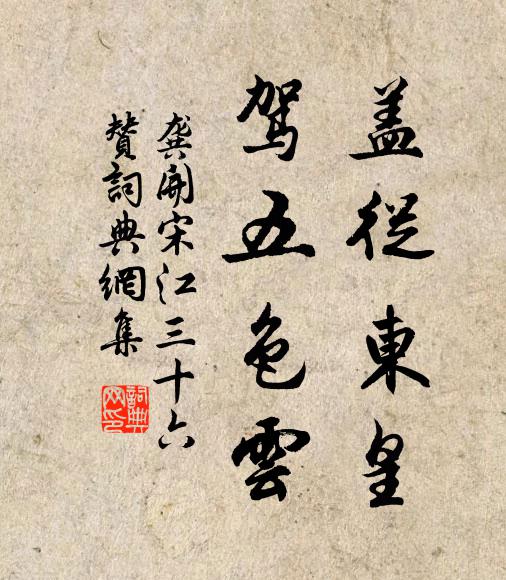 盖從東皇
駕五色雲
龔開宋江三十六
賛詞典網集
詞典网印